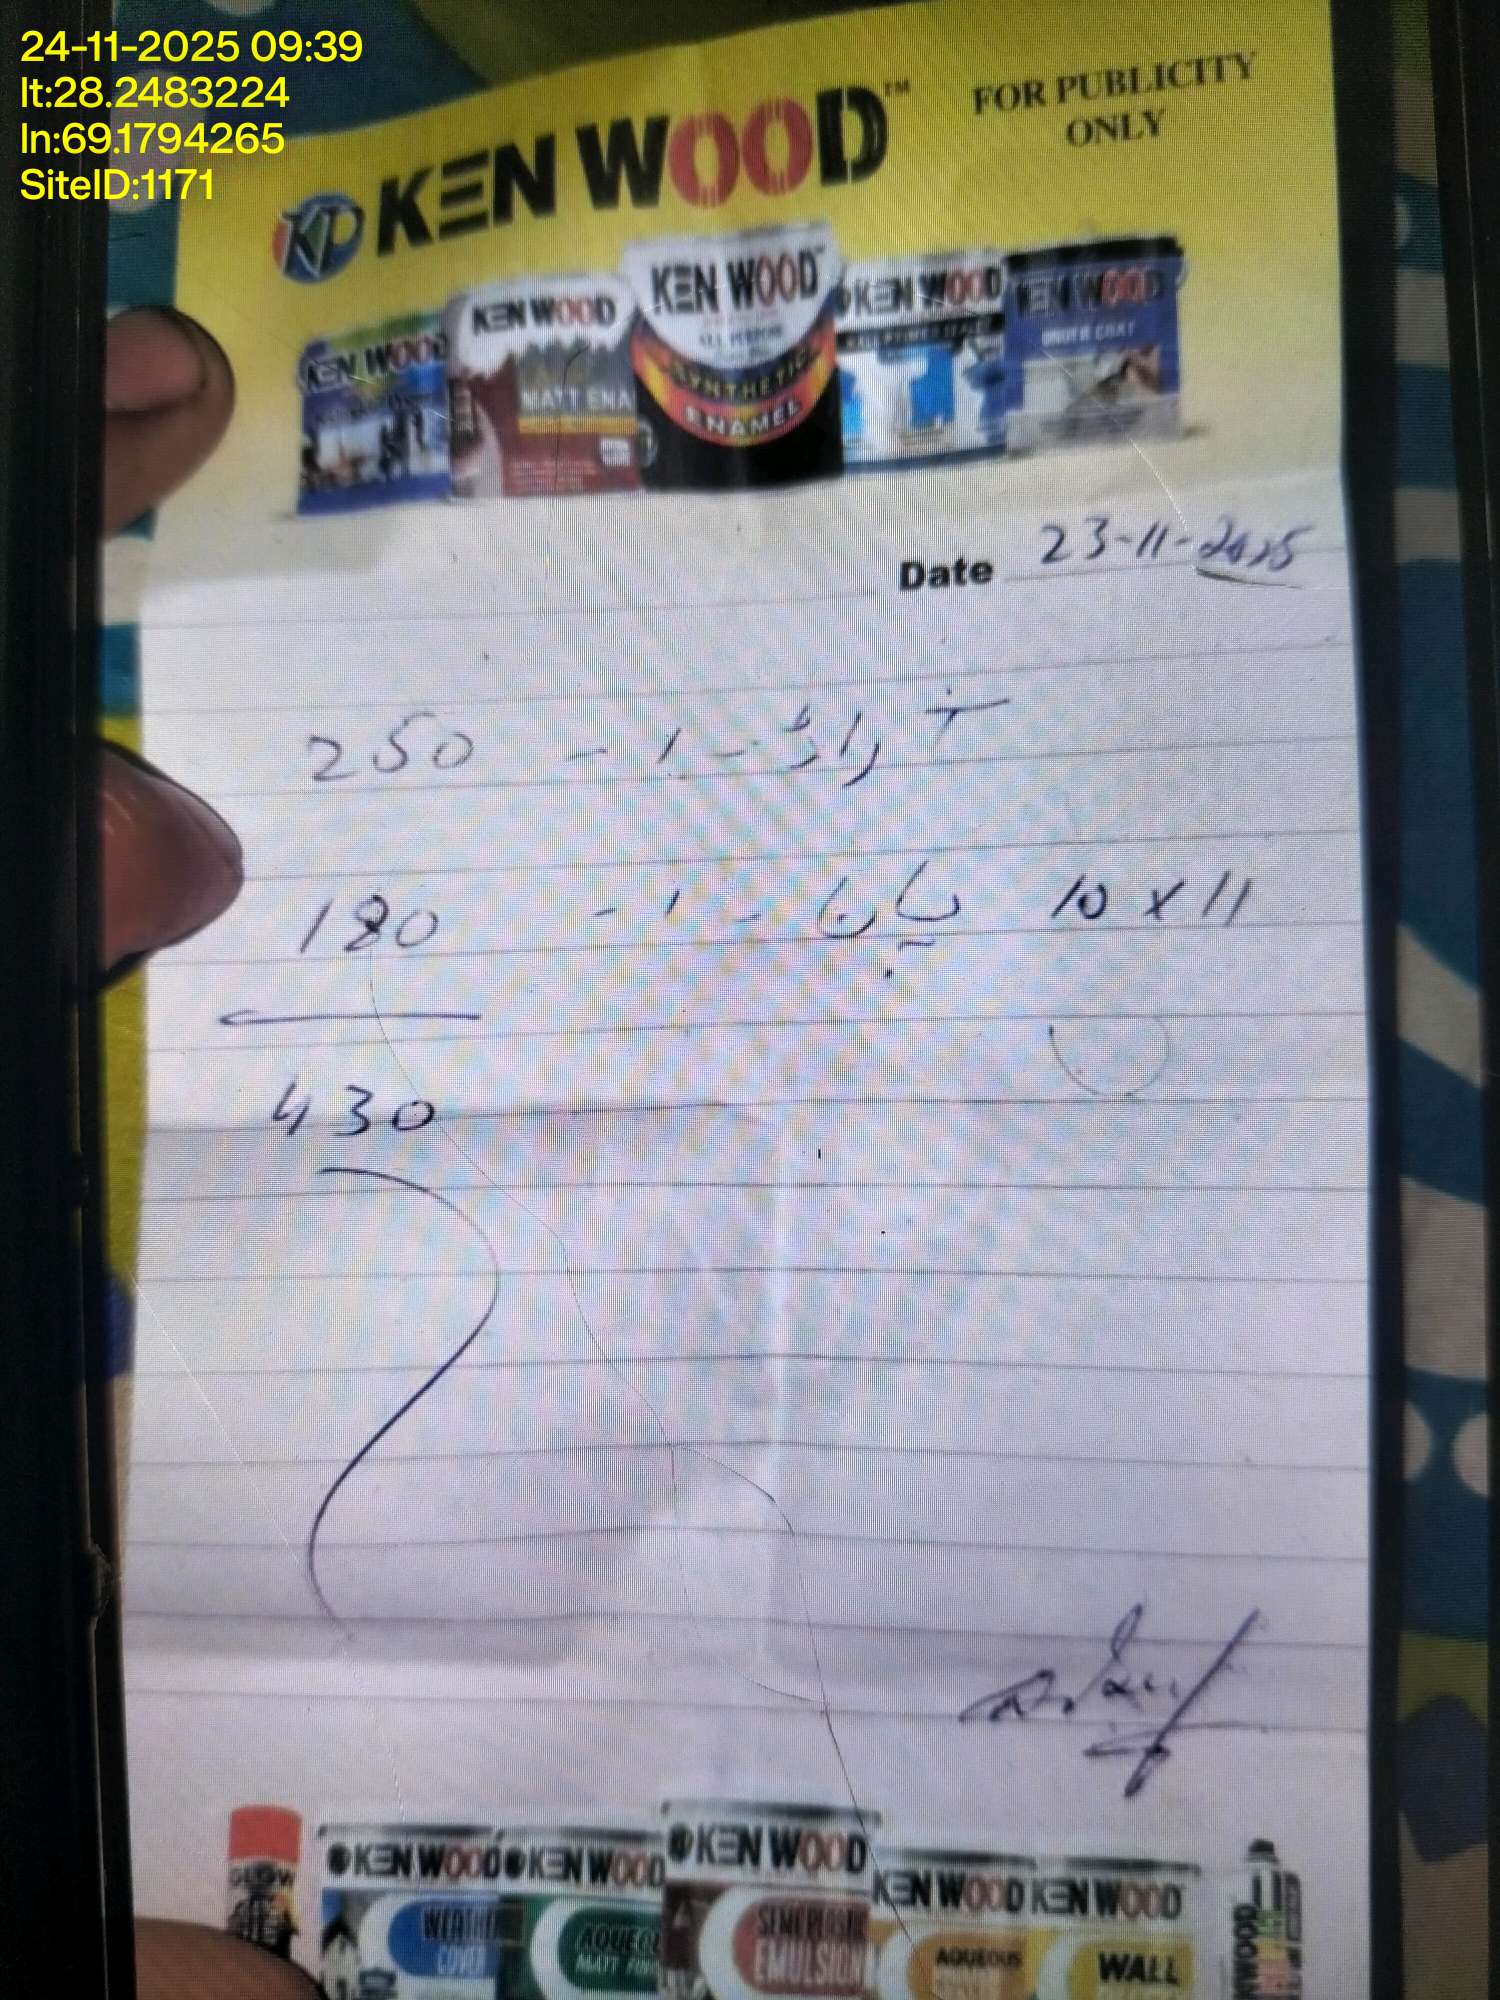 24-11-2025 09:39
lt:28.2483224
ln:69.1794265
SiteID:1171
FOR PUBLICITY
ONLY
KP KEN WOOD™
KEN WOOD
KEN WOOD
MATT ENA
KEN WOOD
SYNTHETIC
ENAMEL
KEN WOOD
KEN WOOD
UNDER COAT
Date 23-11-2025
250 - 1 -
10 x 11 پانا - 1 - 180
430
GLOW
KEN WOOD
WEATHER
COVER
KEN WOOD
AQUEOUS
MATT FINISH
KEN WOOD
SEMI PLASTIC
EMULSION
KEN WOOD
AQUEOUS
KEN WOOD
WALL